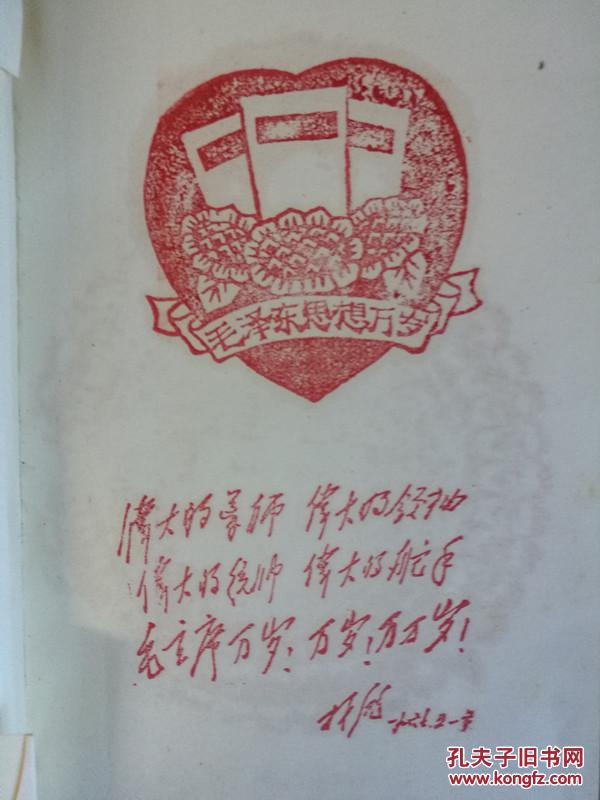 毛泽东思想万岁
偉大的导师 偉大的领袖
偉大的统帅 偉大的舵手
毛主席万岁！万岁！万万岁！
林彪
孔夫子旧书网
www.kongfz.com